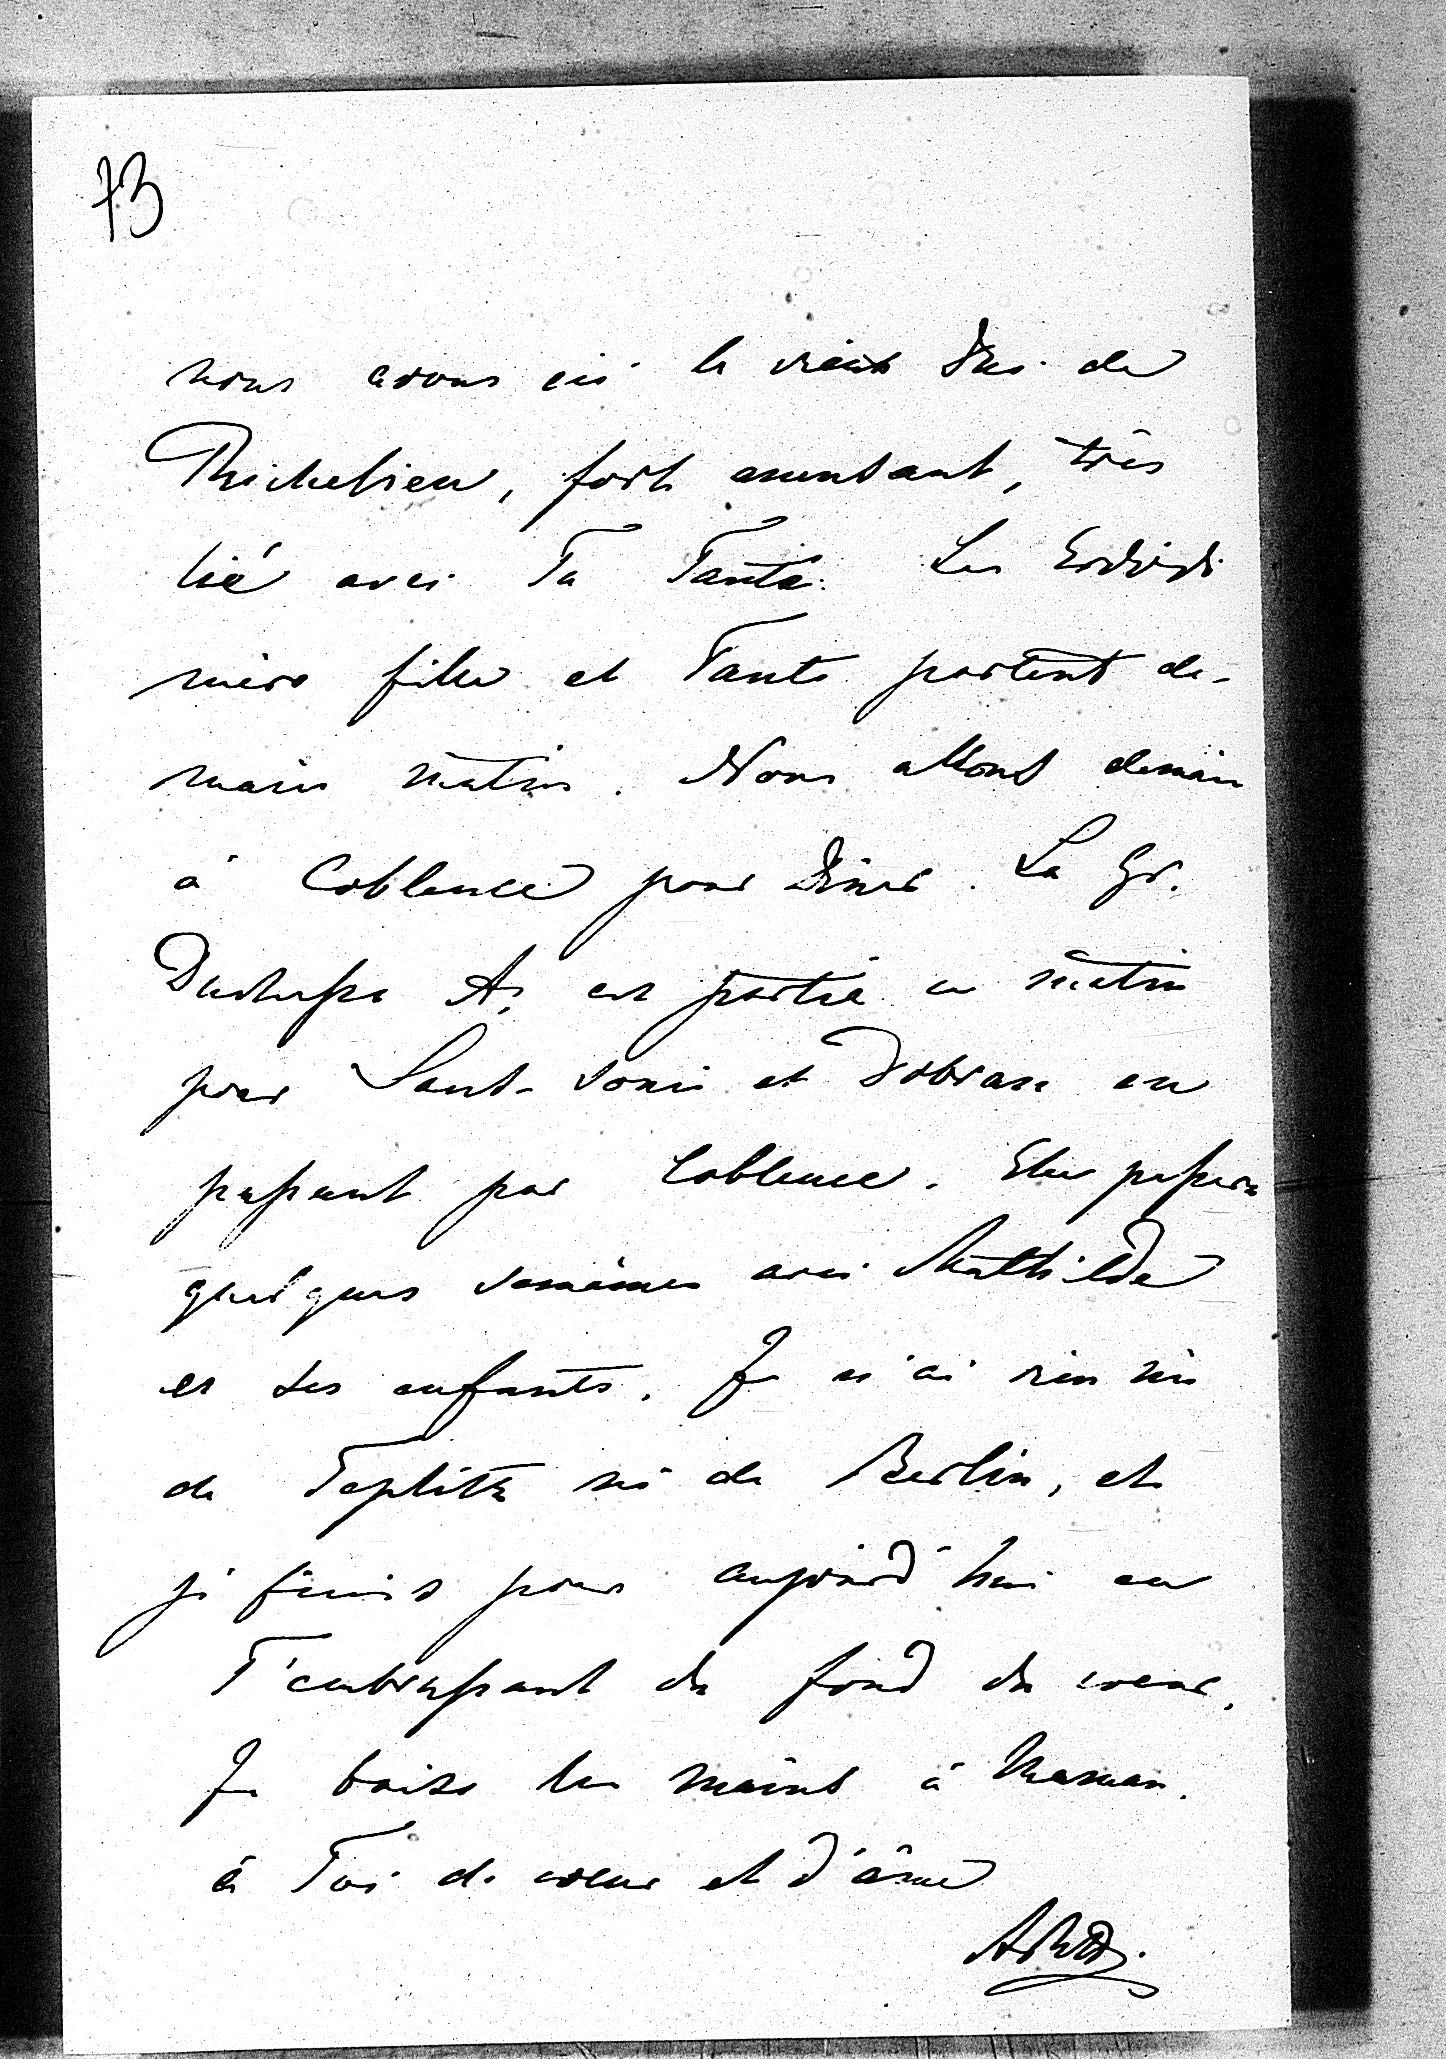 73
nous avons ici le vieux Duc de
Richelieu, fort amusant, très
lié avec Ta Tante. Les
mère fille et Tante partent de-
main matin. Nous allons demain
à Coblence pour dîner. La Gr.
Duchesse A. est partie ce matin
pour Sans-Souci et Dobran en
passant par Coblence. Elle passera
quelques semaines avec Mathilde
et ses enfants. Je n'ai rien ni
de Teplitz ni de Berlin, et
je finis pour aujourd'hui en
T'embrassant du fond du coeur.
Je baise les mains à Maman.
à Toi de coeur et d'âme